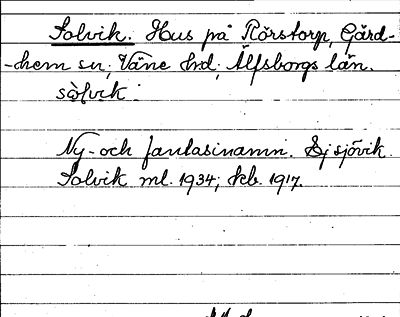 Solvik. Hus på Rörstorp, Gärd-
-hem sn, Väne hd, Älfsborgs län.
sòlvik
Ny- och fantasinamn. Ej sjövik.
Solvik ml. 1934; kb. 1917.